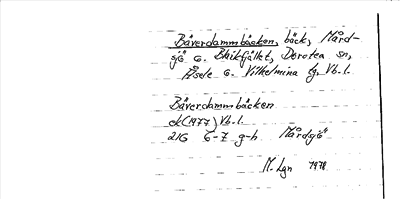 Bäverdammbäcken, bäck, Mård-
sjö o. Blaikfjället, Dorotea sn,
Åsele o. Vilhelmina tg, Vb.l.
Bäverdammbäcken
ek (1977) Vb.l.
21G 6-7 g-h Mårdsjö
M. Lgn 1978